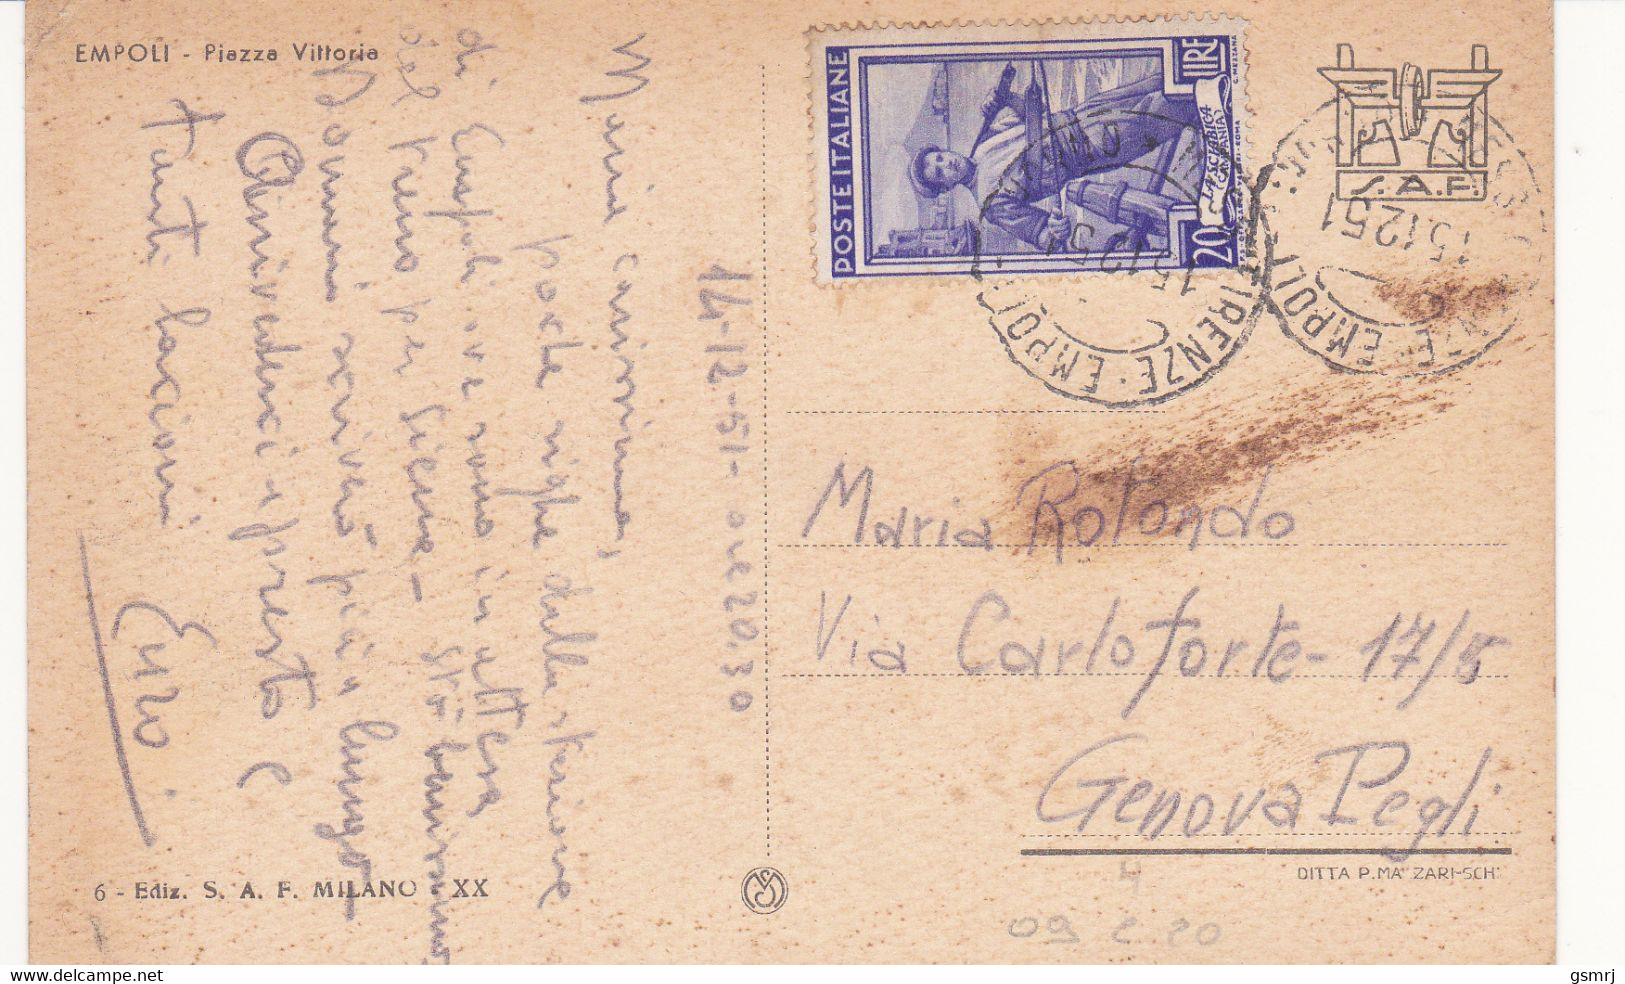 EMPOLI - Piazza Vittoria
14-12-51- ore 20.30
carissima,
poche righe dalla stazione
di Empoli ove sono in attesa
del treno per Siena - Stò benissimo
Domani scriverò più a lungo -
Arrivederci e presto e
Tanti bacioni
Enzo
6 - Ediz. S. A. F. MILANO XX
POSTE ITALIANE
20 LIRE
LA SCIABICA
CAMPANIA
C. MEZZANA
S. A. F.
EMPOLI
FIRENZE
15.12.51
EMPOLI
15.12.51
Maria Rotondo
Via Carloforte - 17/5
Genova Pegli
DITTA P. MA ZARI-SCH
4
09 2 20
gsmrj